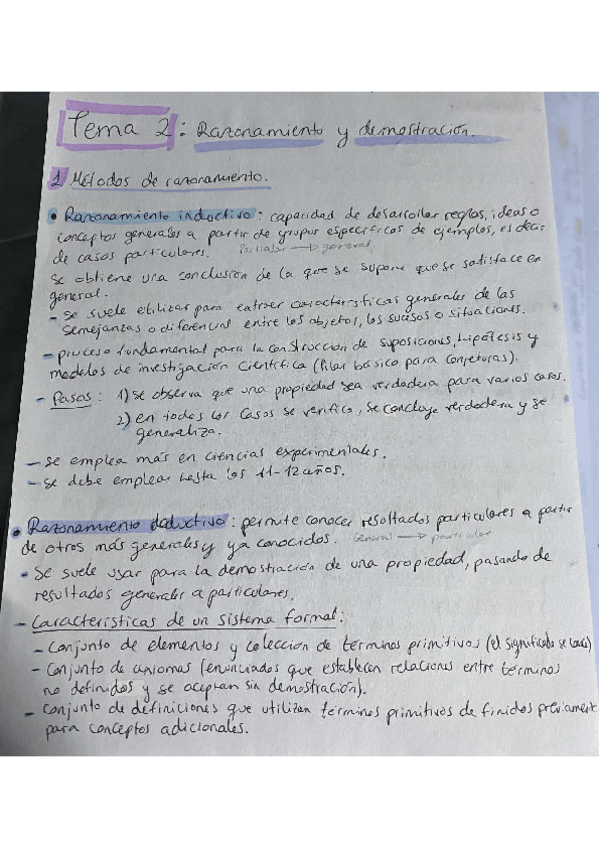 Tema 2: Razonamiento y demostración.
1 Métodos de razonamiento.
• Razonamiento inductivo: capacidad de desarrollar reglas, ideas o
conceptos generales a partir de grupos específicos de ejemplos, es decir
de casos particulares. Particular → general
se obtiene una conclusión de la que se supone que se satisface en
general.
- se suele utilizar para extraer características generales de las
semejanzas o diferencial entre los objetos, los sucesos o situaciones.
- proceso fundamental para la construcción de suposiciones, hipótesis y
modelos de investigación científica (Pilar básico para conjeturas).
- Pasos: 1) se observa que una propiedad sea verdadera para varios casos.
2) en todos los casos se verifica, se concluye verdadera y se
generaliza.
- se emplea más en ciencias experimentales.
- se debe emplear hasta los 11-12 años.
• Razonamiento deductivo: permite conocer resultados particulares a partir
de otros más generales y ya conocidos. General → particular
- Se suele usar para la demostración de una propiedad, pasando de
resultados generales a particulares.
- Características de un sistema formal:
- Conjunto de elementos y colección de términos primitivos (el significado se
- Conjunto de axiomas (enunciados que establecen relaciones entre términos
no definidos y se aceptan sin demostración).
- Conjunto de definiciones que utilizan términos primitivos definidos previament
para conceptos adicionales.